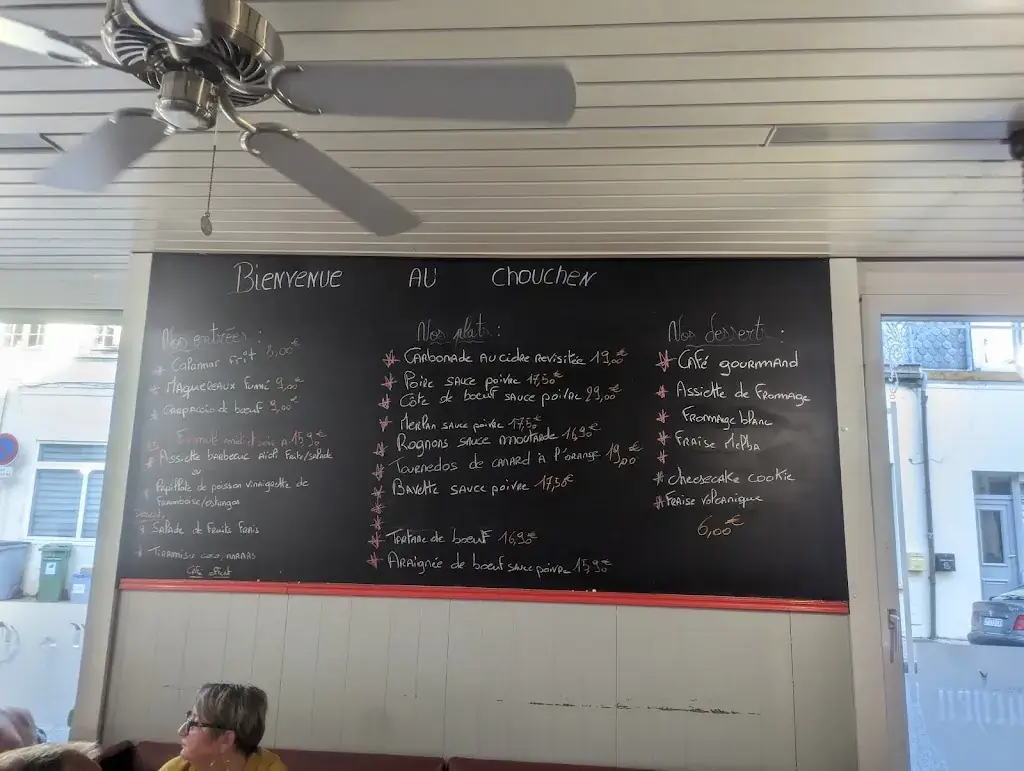 BIENVENUE AU CHOUCHEN
Nos entrées :
Calamar frit 8,00€
Maquereaux fumé 9,00€
Carpaccio de boeuf 9,00€
Formule midi 15,90€
Assiette barbecue Aioli Frites/salade
ou
Papillote de poisson vinaigrette de
Framboise/estragon
Dessert
Salade de Fruits Frais
Tiramisu coco,
Café offert
Nos plats :
Carbonade au cidre revisitée 19,00€
Poire sauce poivre 17,50€
Côte de boeuf sauce poivre 29,00€
Merlan sauce poivre 17,50€
Rognons sauce moutarde 16,90€
Tournedos de canard à l'orange 19,00€
Bavette sauce poivre 17,50€
Tartare de boeuf 16,90€
Araignée de boeuf sauce poivre 15,90€
Nos desserts :
Café gourmand
Assiette de Fromage
Fromage blanc
Fraise Melba
Cheesecake cookie
Fraise volcanique
6,00€